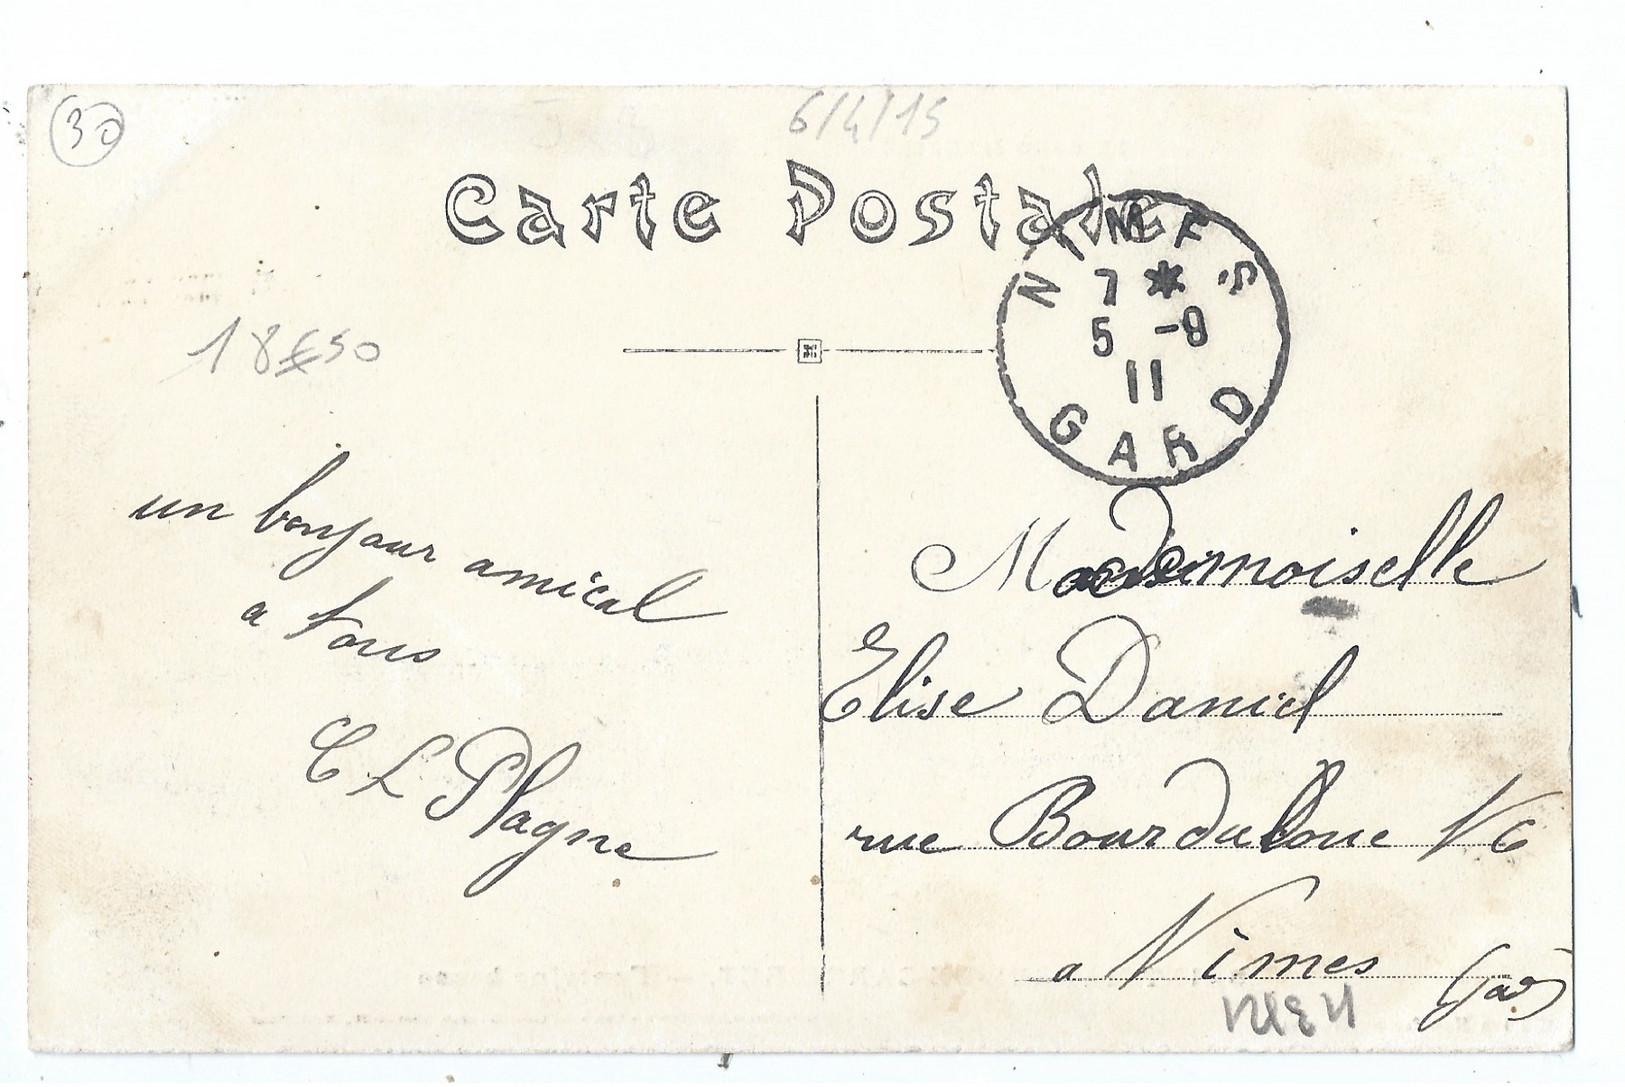 30
6/4/15
Carte Postale
NIMES
7 *
5 -9
11
GARD
18€50
un bonjour amical
a tous
C L Plagne
Mademoiselle
Elise Daniel
rue Bourdaloue N 6
a Nimes Gard